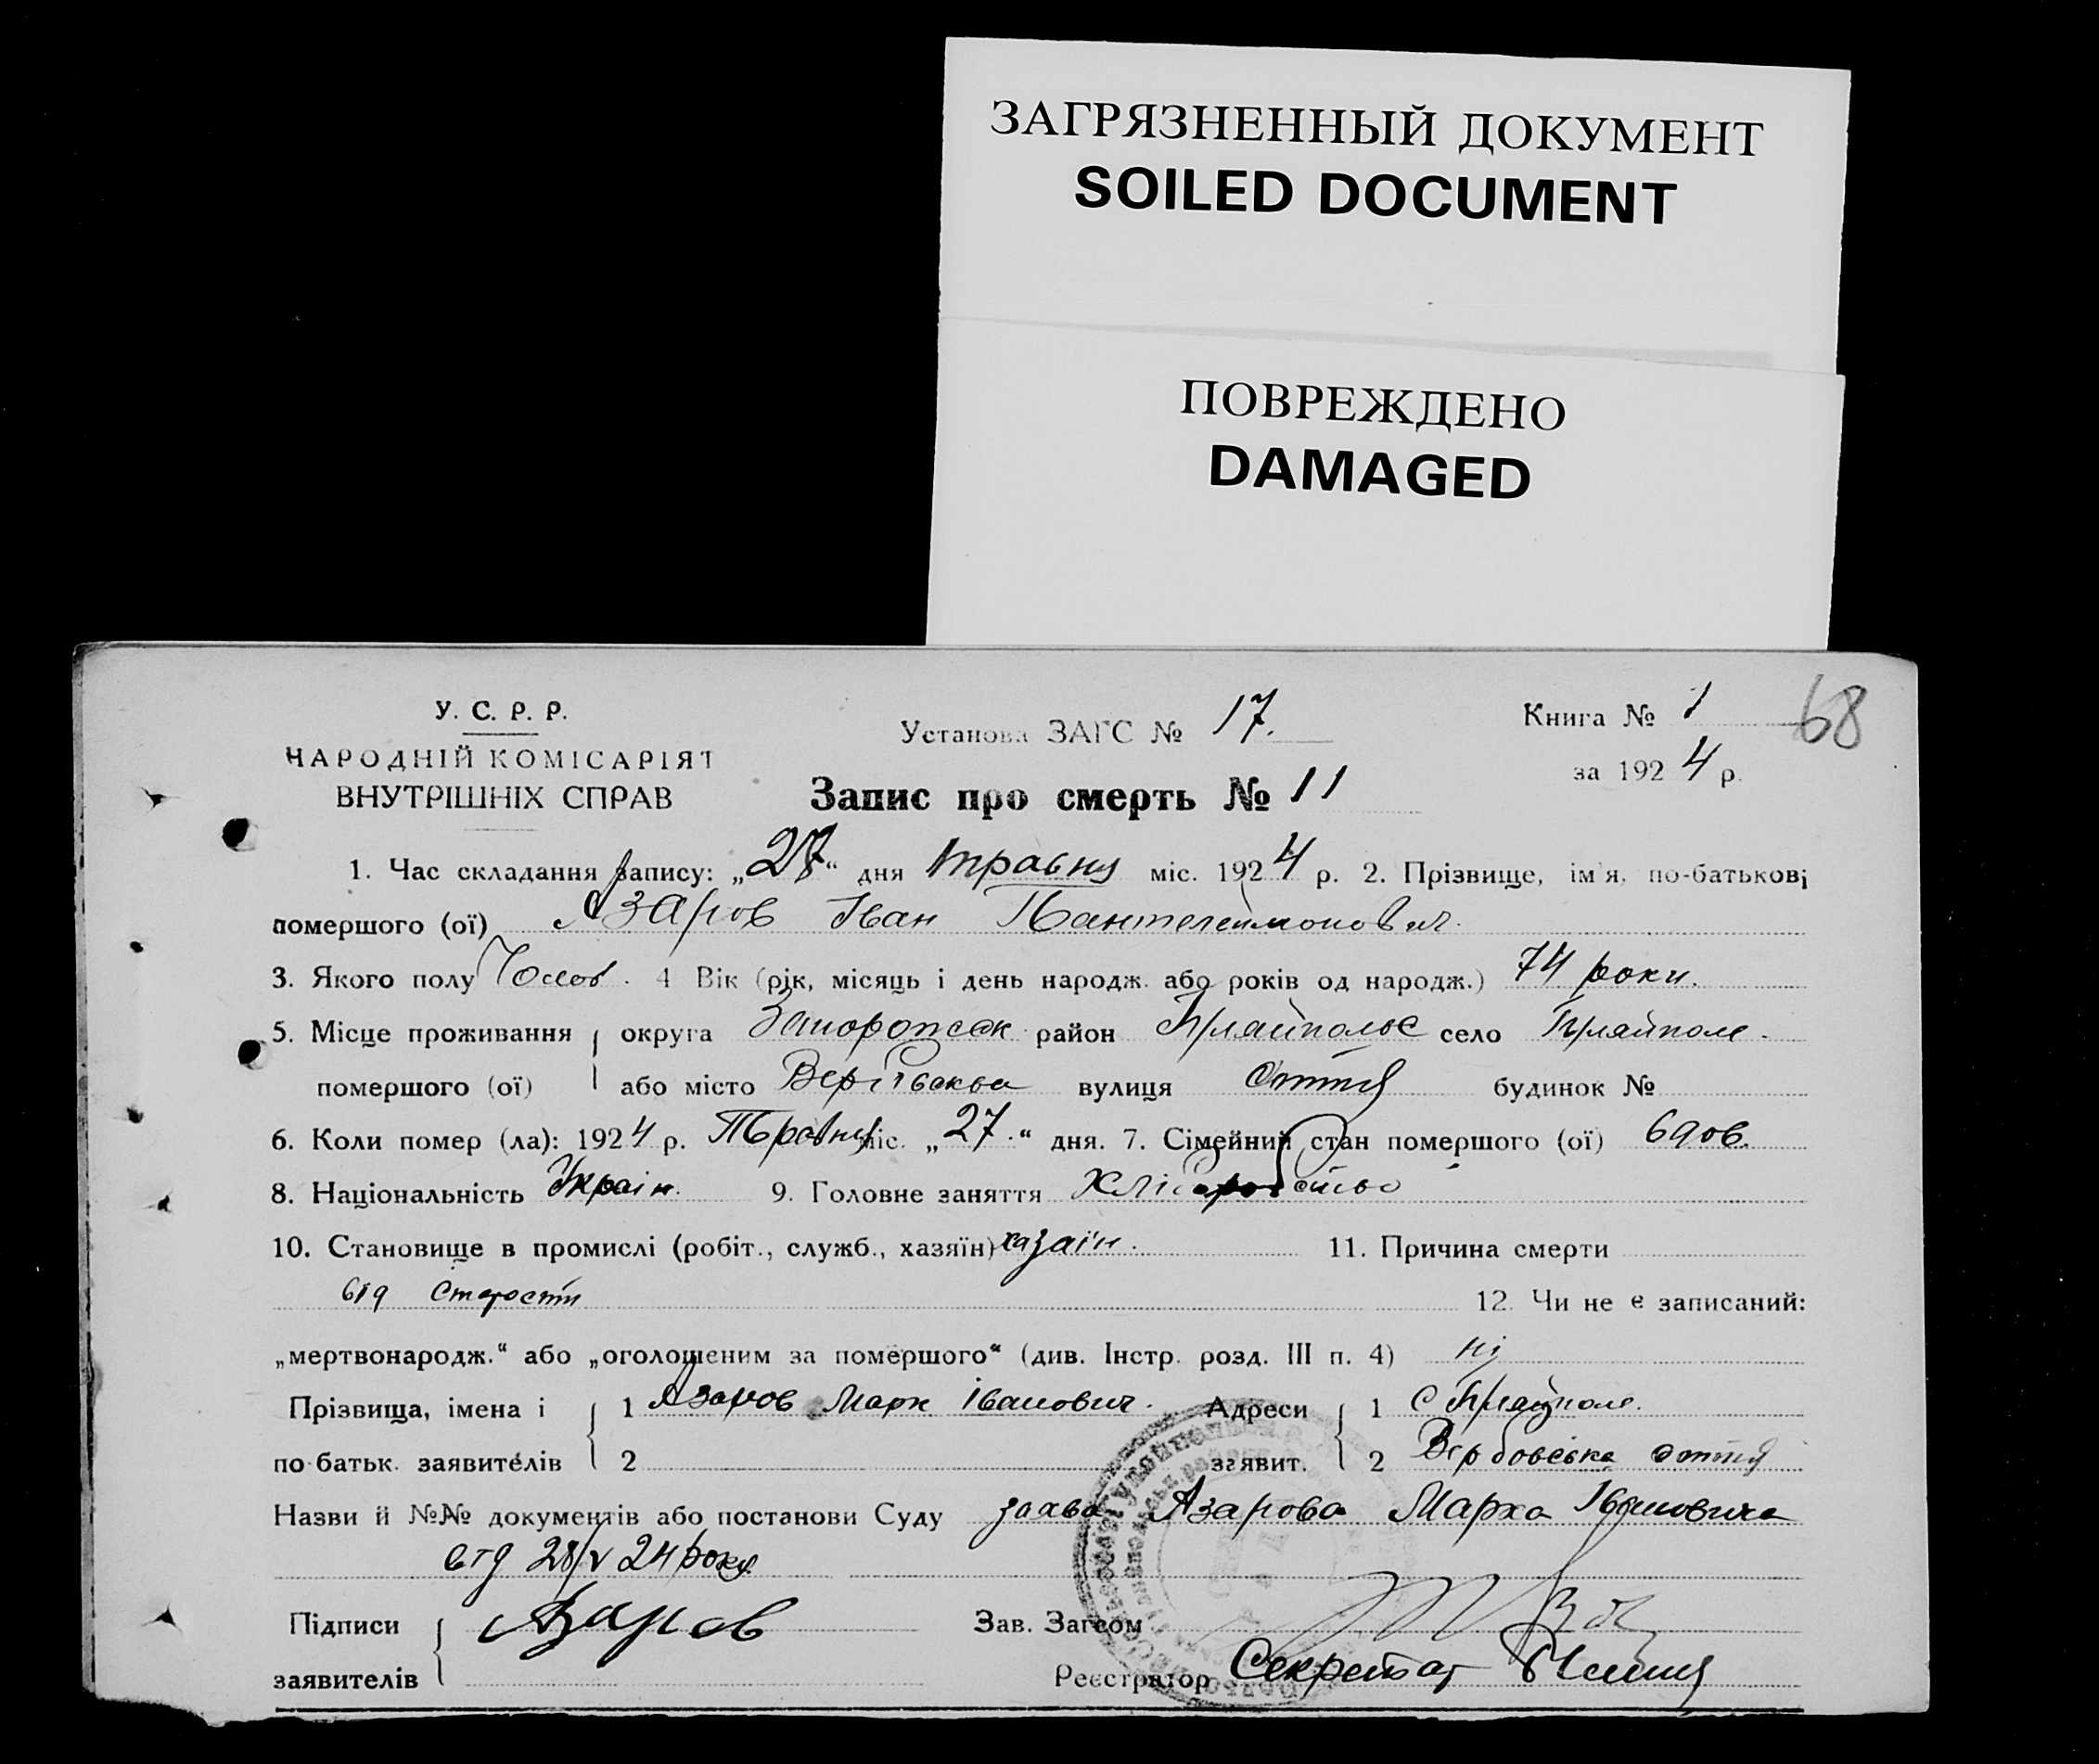 ЗАГРЯЗНЕННЫЙ ДОКУМЕНТ
SOILED DOCUMENT
ПОВРЕЖДЕНО
DAMAGED
68
У. С. Р. Р.
НАРОДНІЙ КОМІСАРІЯТ
ВНУТРІШНІХ СПРАВ
Установа ЗАГС № 17.
Книга № 1
за 1924 р.
Запис про смерть № 11
1. Час складання запису: „27“ дня травня міс. 1924 р. 2. Прізвище, ім'я, по-батькові
помершого (ої) Азаров Іван Пантелеймонович.
3. Якого полу Чолов. 4 Вік (рік, місяць і день народж. або років од народж.) 74 роки.
5. Місце проживання округа район село Гуляйполе.
помершого (ої) або місто вулиця сотня будинок №
6. Коли помер (ла): 1924 р. Травня міс. „27.“ дня. 7. Сімейний стан помершого (ої) вдов.
8. Національність Україн. 9. Головне заняття
10. Становище в промислі (робіт., служб., хазяїн) хазаїн. 11. Причина смерти
від старости 12. Чи не є записаний:
„мертвонародж.“ або „оголошеним за помершого“ (див. Інстр. розд. III п. 4) ні
Прізвища, імена і 1 Азаров Марк Іванович. Адреси 1 с Гуляйполе.
по батьк. заявителів 2 заявит. 2 Вербовська сотня
Назви й №№ документів або постанови Суду заява Азарова Марка Івановича
від 28/V 24 року
Підписи Азаров Зав. Загсом
заявителів Реєстратор Секретар